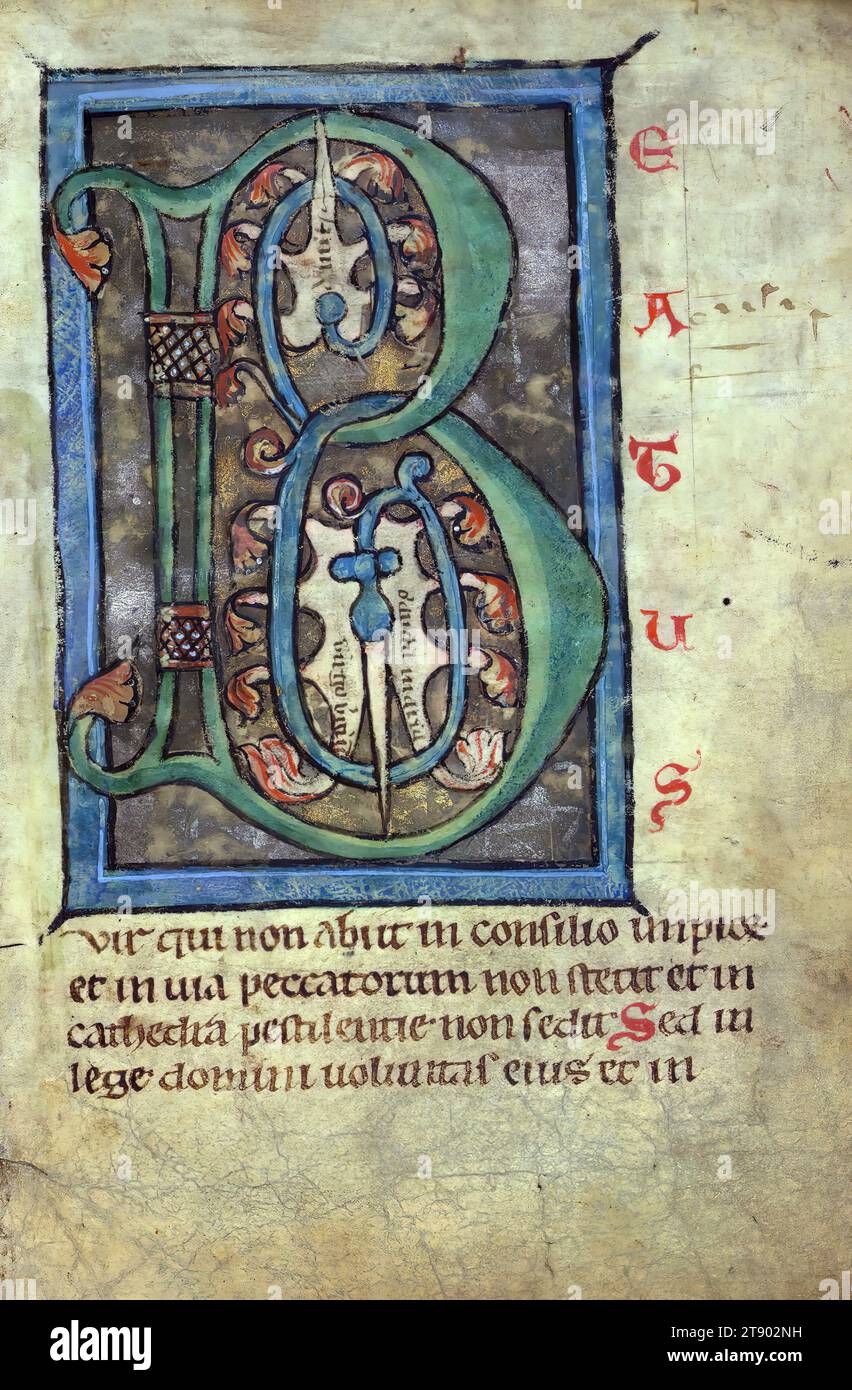 B
E
A
T
U
S
vir qui non abiit in consilio impioꝝ
et in via peccatorum non stetit et in
cathedra pestilentie non sedit Sed in
lege domini voluntas eius et in
alamy
Image ID: 2T902NH
www.alamy.com